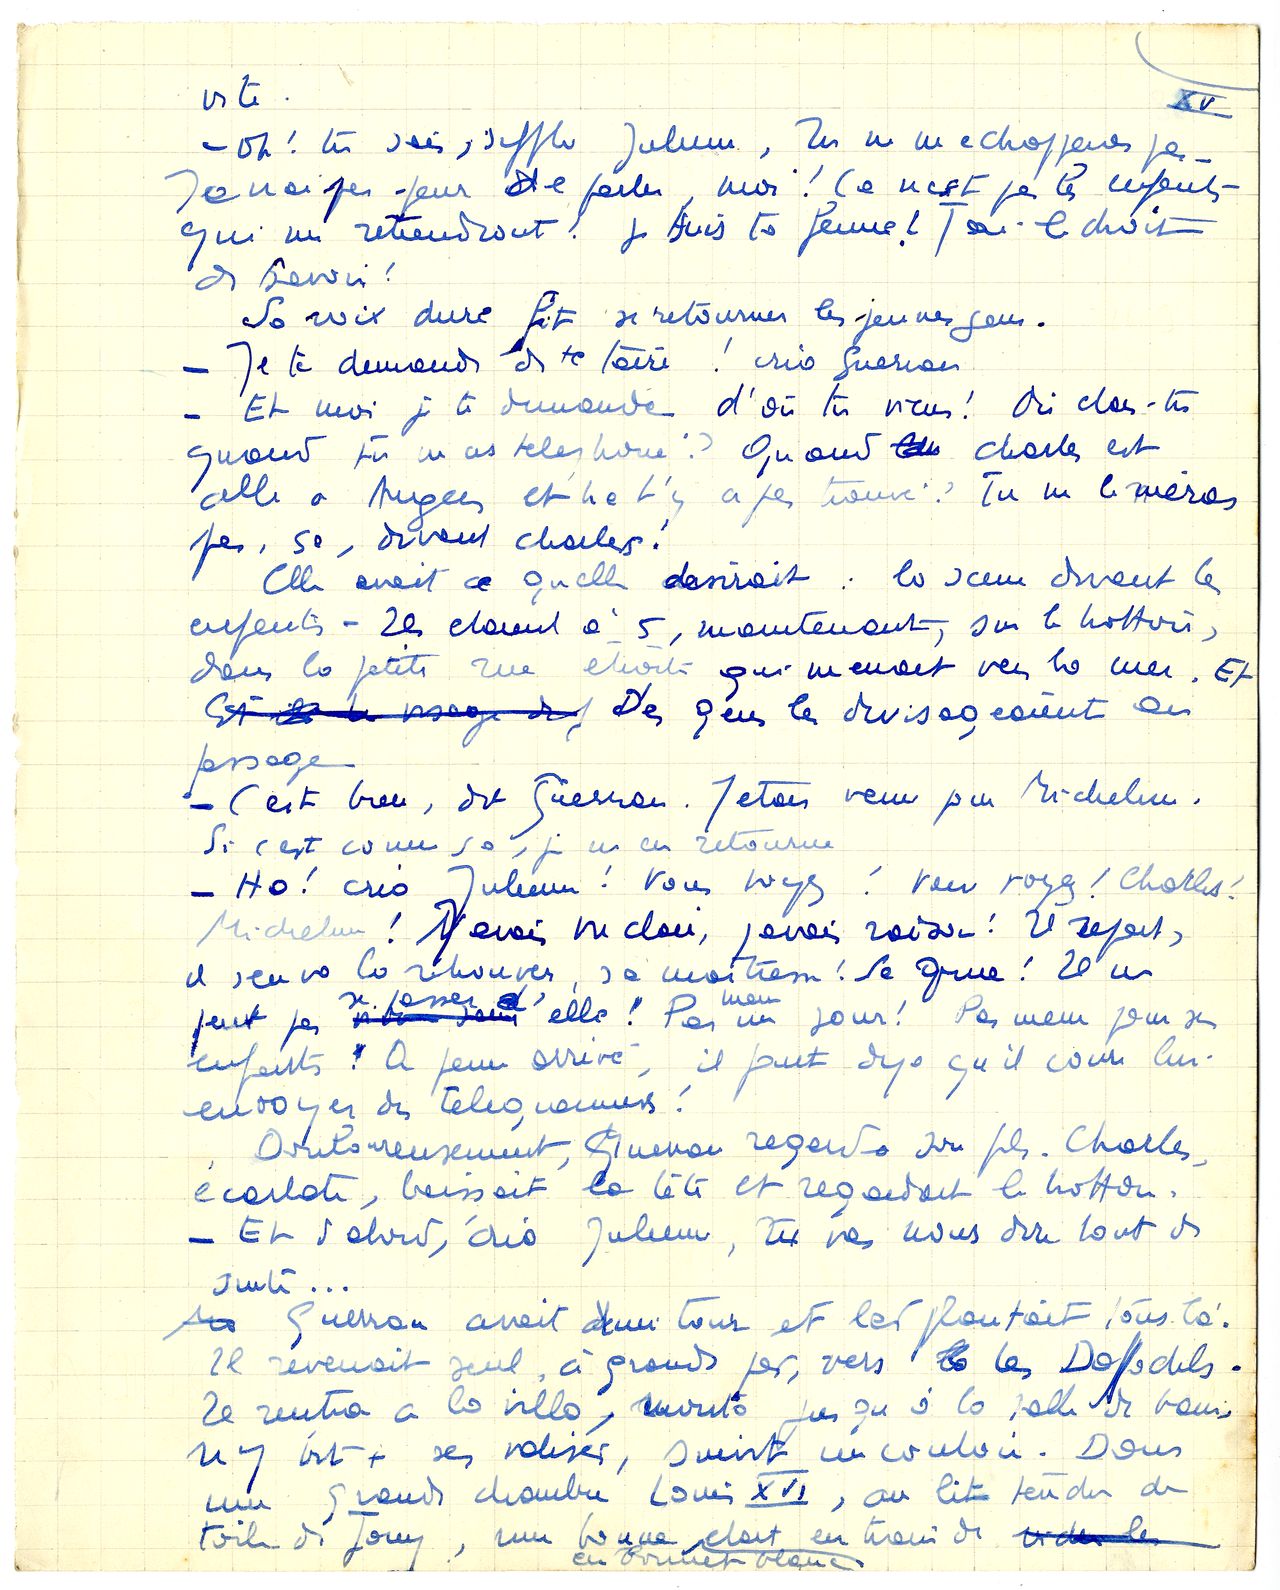 XV
vite.
– Oh! tu sais, siffla Julienne, tu ne m echapperas pas –
Je nai pas peur de parler, moi! Ca nest pas les enfants
qui me retiendront! je suis ta femme! J ai le droit
de savoir!
Sa voix dure fit se retourner les jeunes gens.
– Je te demande de te taire! cria Guerran
– Et moi je te demande d'où tu viens! Où etais-tu
quand tu m as telephoné? Quand Charles est
allé a Angers et ne t'y a pas trouvé? Tu ne le nieras
pas, ça, devant Charles!
Elle avait ce quelle desirait : la scene devant les
enfants – Ils etaient à 5, maintenant, sur le trottoir,
dans la petite rue étroite qui menait vers la mer. Et
Des gens les devisageaient au
passage
– C'est bien, dit Guerran. J etais venu pour Micheline.
Si c'est comme ça, je m en retourne
– Ha! cria Julienne! Vous voyez! Vous voyez! Charles!
Micheline! J'avais vu clair, javais raison! Il repart,
il s'en va la retrouver, sa maitresse! Sa grue! Il ne
peut pas se passer d' elle! Pas même un jour! Pas meme pour ses
enfants! A peine arrivé, il faut deja qu'il coure lui
envoyer des télégrammes!
Douloureusement, Guerran regarda son fils. Charles,
écarlate, baissait la tête et regardait le trottoir.
– Et d'abord, cria Julienne, tu vas nous dire tout de
suite...
Guerran avait demi tour et les plantait tous là.
Il revenait seul, à grands pas, vers les Daffodils.
Il rentra a la villa, monta jusqu'à la salle de bains
n'y vit + ses valises, suivit un couloir. Dans
une grande chambre Louis XVI, au lit tendu de
toile de Jouy, une bonne en bonnet blanc etait en train de